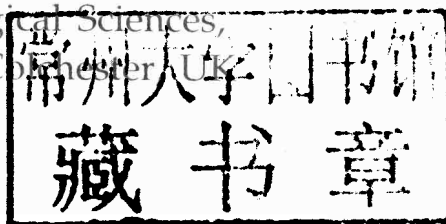 gical Sciences,
Colchester, UK
常州大学图书馆
藏书章